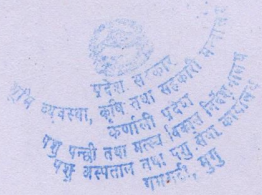 प्रदेश सरकार
भूमि व्यवस्था, कृषि तथा सहकारी मन्त्रालय
कर्णाली प्रदेश
पशु पन्छी तथा मत्स्य विकास निर्देशनालय
पशु अस्पताल तथा पशु सेवा कार्यालय
गमगढी, मुगु